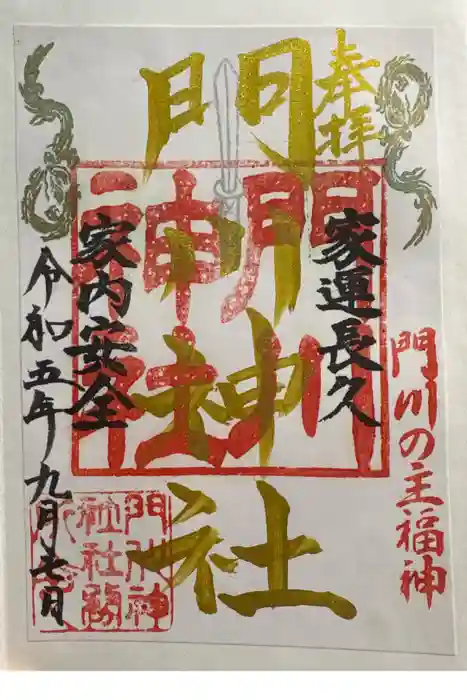 奉拝
門川の主福神
家運長久
門川神社
家内安全
令和五年九月七日
門川
神社
門川神
社社務
所